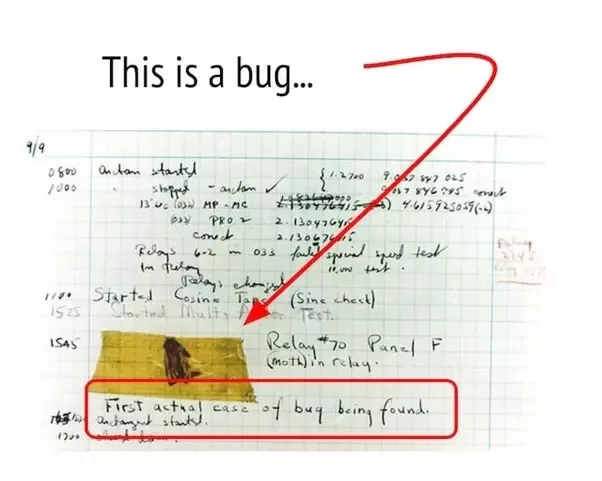 This is a bug...
9/9
0800 antan started
1000 " stopped - antan ✓ { 1.2700 9.037 847 025
9.037 846 995 correct
13"uc (032) MP-MC 2.130476415 4.615925059(-2)
(033) PRO 2 2.130476415
correct 2.130676415
Relays 6-2 in 033 failed special speed test
In Relay 10,000 test.
Relays changed
1100 Started Cosine Tape (Sine check)
1525 Started Multy Adder Test.
1545 Relay #70 Panel F
(moth) in relay.
First actual case of bug being found.
antangent started.
1700 closed down.